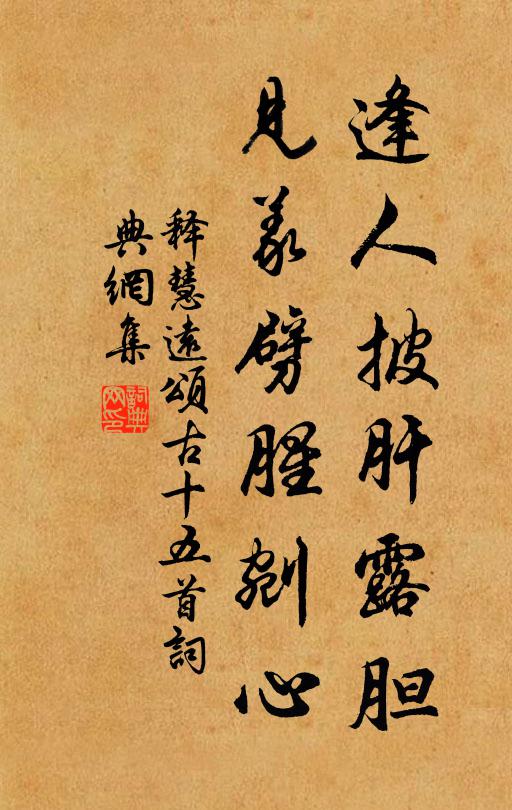 逢人披肝露胆
见義劈腥剜心
释慧遠頌古十五首詞
典網集
詞典网印